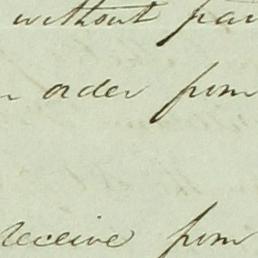 without
order from
receive from